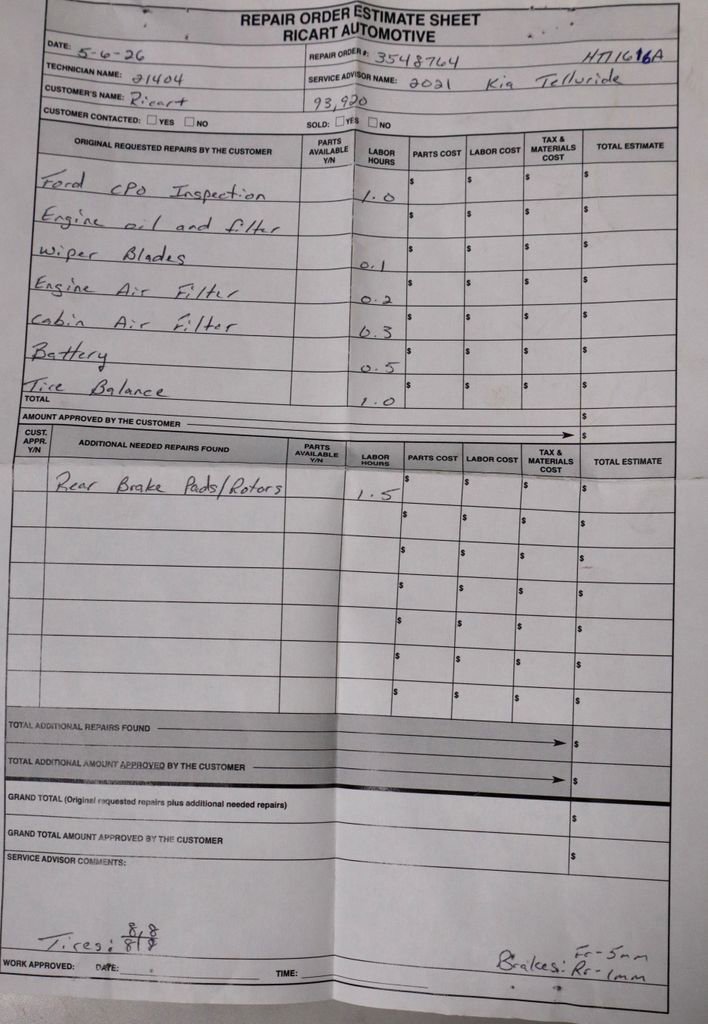 REPAIR ORDER ESTIMATE SHEET
RICART AUTOMOTIVE
DATE: 5-6-26
REPAIR ORDER #: 3548764 HTI1616A
TECHNICIAN NAME: 21404
SERVICE ADVISOR NAME: 2021 Kia Telluride
CUSTOMER'S NAME: Ricart
93,920
CUSTOMER CONTACTED: YES NO
SOLD: YES NO
ORIGINAL REQUESTED REPAIRS BY THE CUSTOMER PARTS AVAILABLE Y/N LABOR HOURS PARTS COST LABOR COST TAX & MATERIALS COST TOTAL ESTIMATE
Ford CPO Inspection 1.0 $ $ $ $
Engine oil and filter $ $ $ $
Wiper Blades 0.1 $ $ $ $
Engine Air Filter 0.2 $ $ $ $
Cabin Air Filter 0.3 $ $ $ $
Battery 0.5 $ $ $ $
Tire Balance 1.0 $ $ $ $
TOTAL $
AMOUNT APPROVED BY THE CUSTOMER $
CUST. APPR. Y/N ADDITIONAL NEEDED REPAIRS FOUND PARTS AVAILABLE Y/N LABOR HOURS PARTS COST LABOR COST TAX & MATERIALS COST TOTAL ESTIMATE
Rear Brake Pads/Rotors 1.5 $ $ $ $
$ $ $ $
$ $ $ $
$ $ $ $
$ $ $ $
$ $ $ $
$ $ $ $
TOTAL ADDITIONAL REPAIRS FOUND $
TOTAL ADDITIONAL AMOUNT APPROVED BY THE CUSTOMER $
GRAND TOTAL (Original requested repairs plus additional needed repairs) $
GRAND TOTAL AMOUNT APPROVED BY THE CUSTOMER $
SERVICE ADVISOR COMMENTS:
Tires: 8|8
8|8
Brakes: Fr-5mm
Rr-1mm
WORK APPROVED: DATE: TIME: